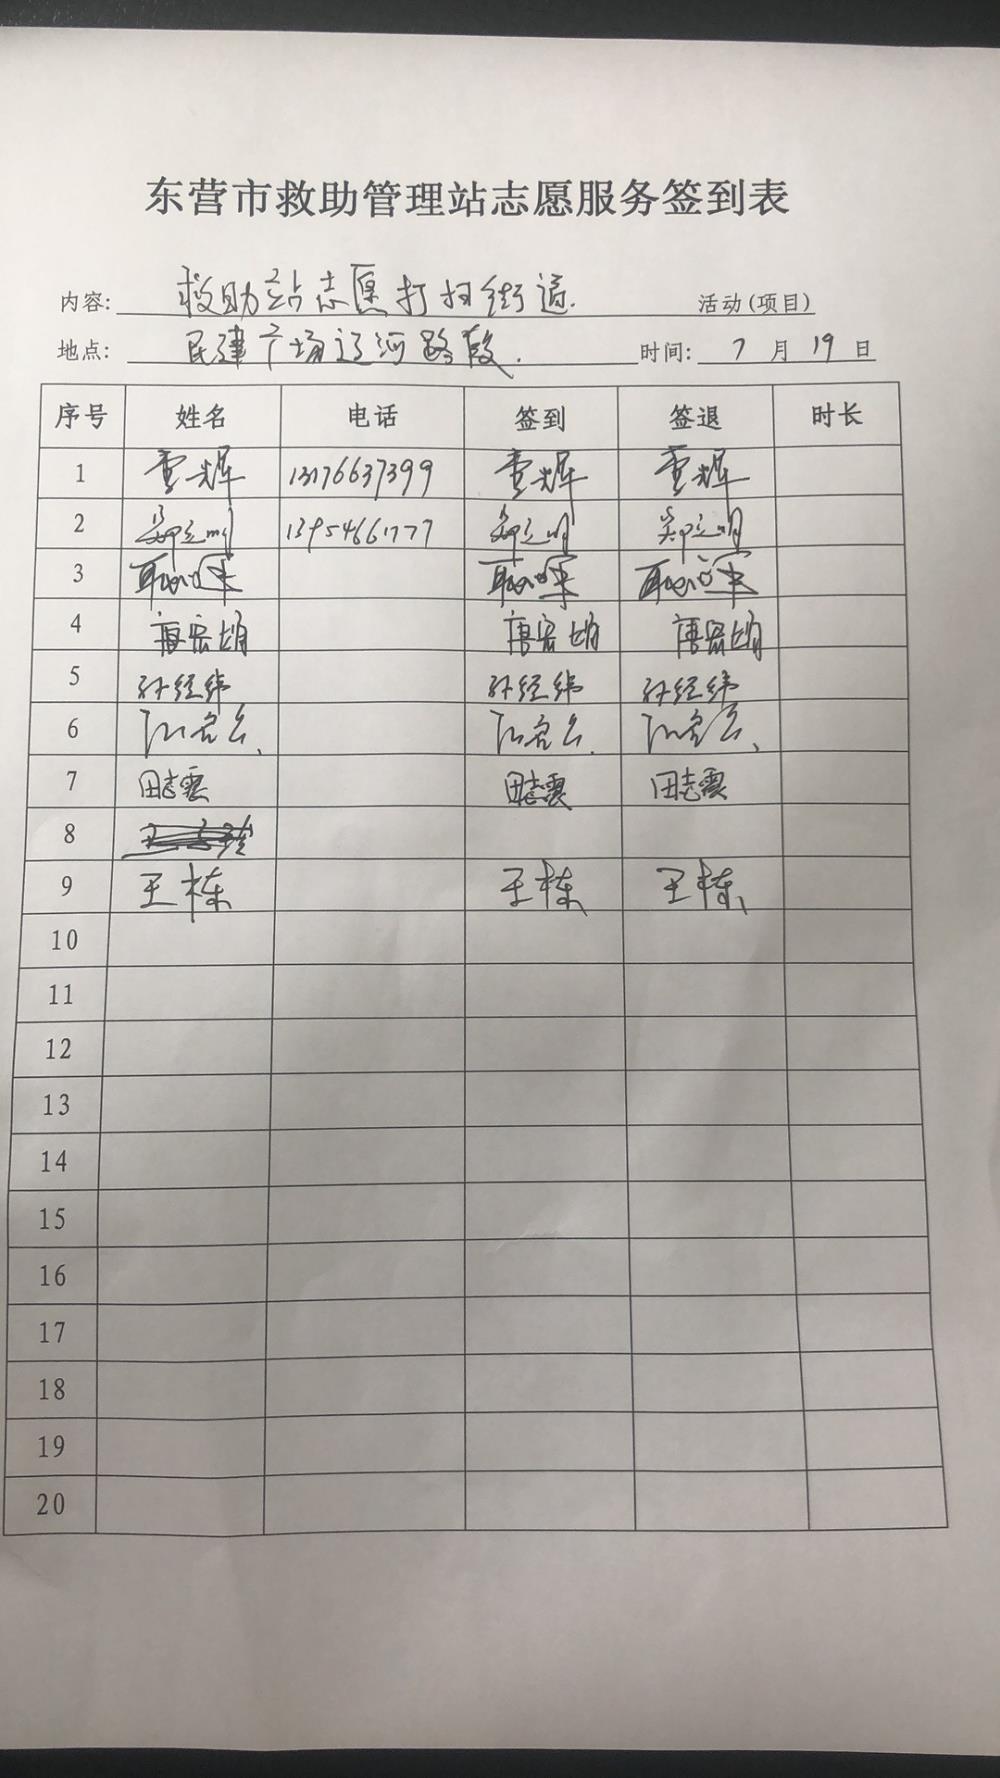 东营市救助管理站志愿服务签到表
内容: 救助站志愿打扫街道. 活动(项目)
地点: 民建广场辽河路段. 时间: 7 月 19 日
序号 姓名 电话 签到 签退 时长
1 董辉 13176637399 董辉 董辉
2 郑立明 13954661777 郑立明 郑立明
3
4 唐宏娟 唐宏娟 唐宏娟
5 孙经纬 孙经纬 孙经纬
6
7 田志震 田志震 田志震
8
9 王栋 王栋 王栋
10
11
12
13
14
15
16
17
18
19
20